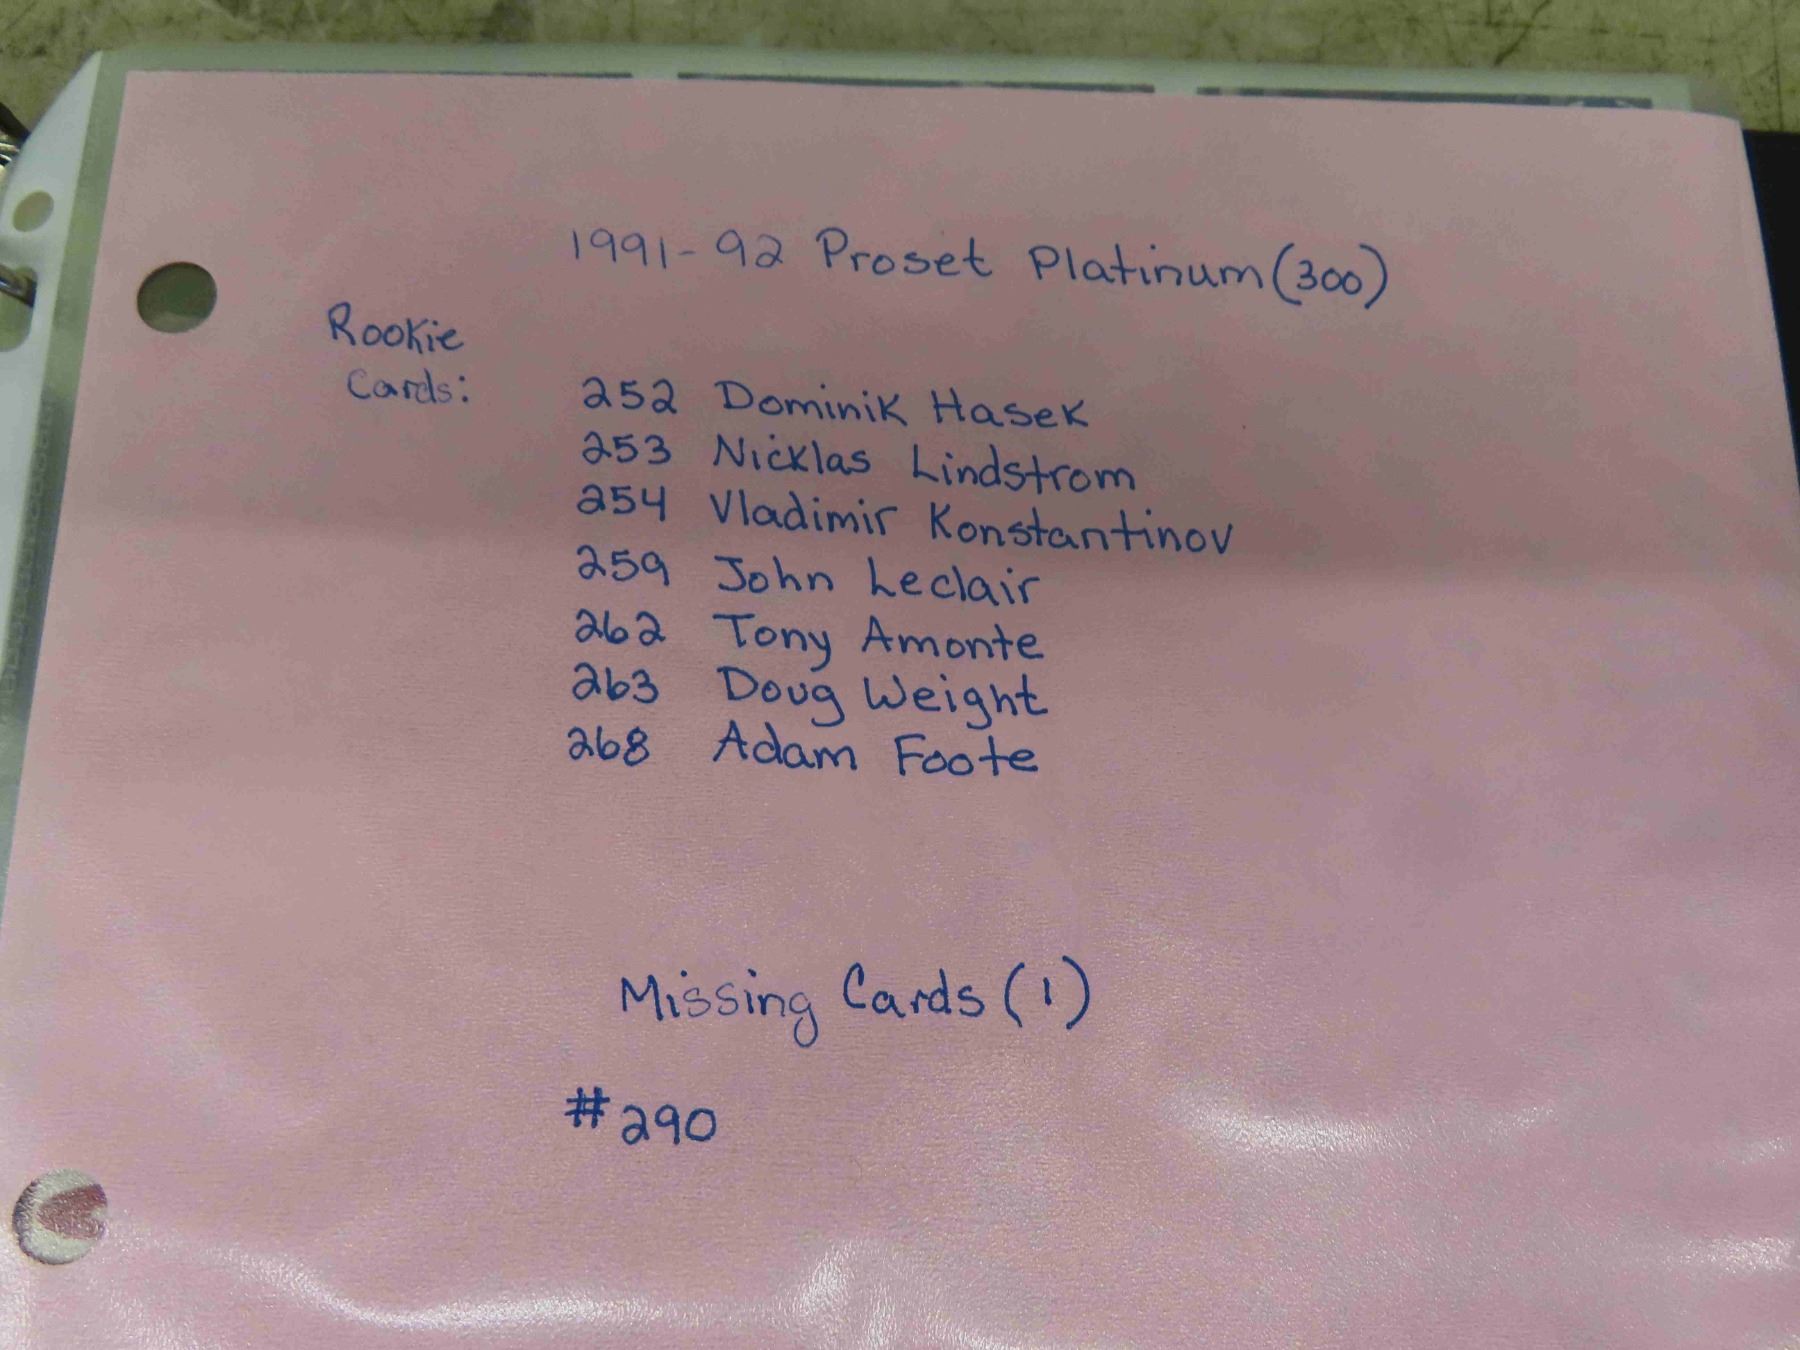 1991-92 Proset Platinum (300)
Rookie
Cards:
252 Dominik Hasek
253 Nicklas Lindstrom
254 Vladimir Konstantinov
259 John Leclair
262 Tony Amonte
263 Doug Weight
268 Adam Foote
Missing Cards (1)
#290